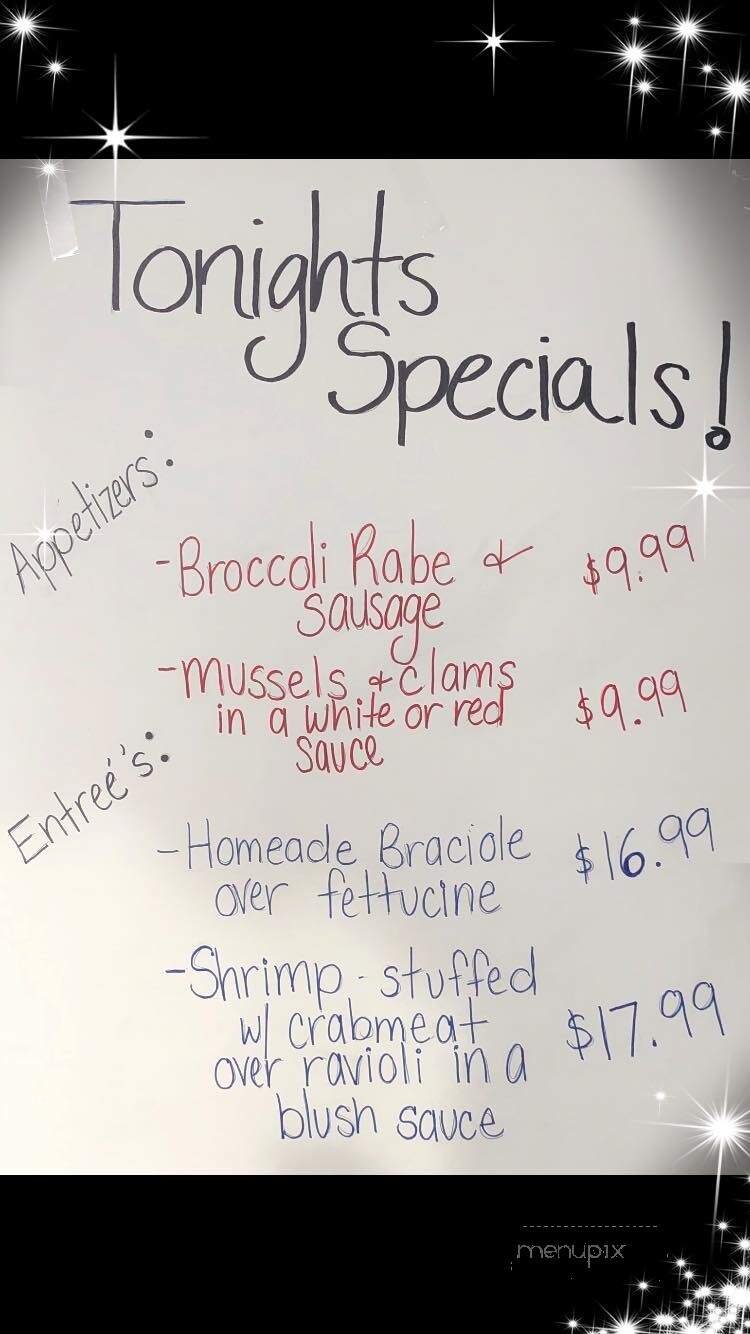 Tonights
Specials!
Appetizers:
-Broccoli Rabe & $9.99
sausage
-Mussels & clams
in a white or red $9.99
sauce
Entreé's:
-Homeade Braciole $16.99
over fettucine
-Shrimp - stuffed
w/ crabmeat $17.99
over ravioli in a
blush sauce
menupix